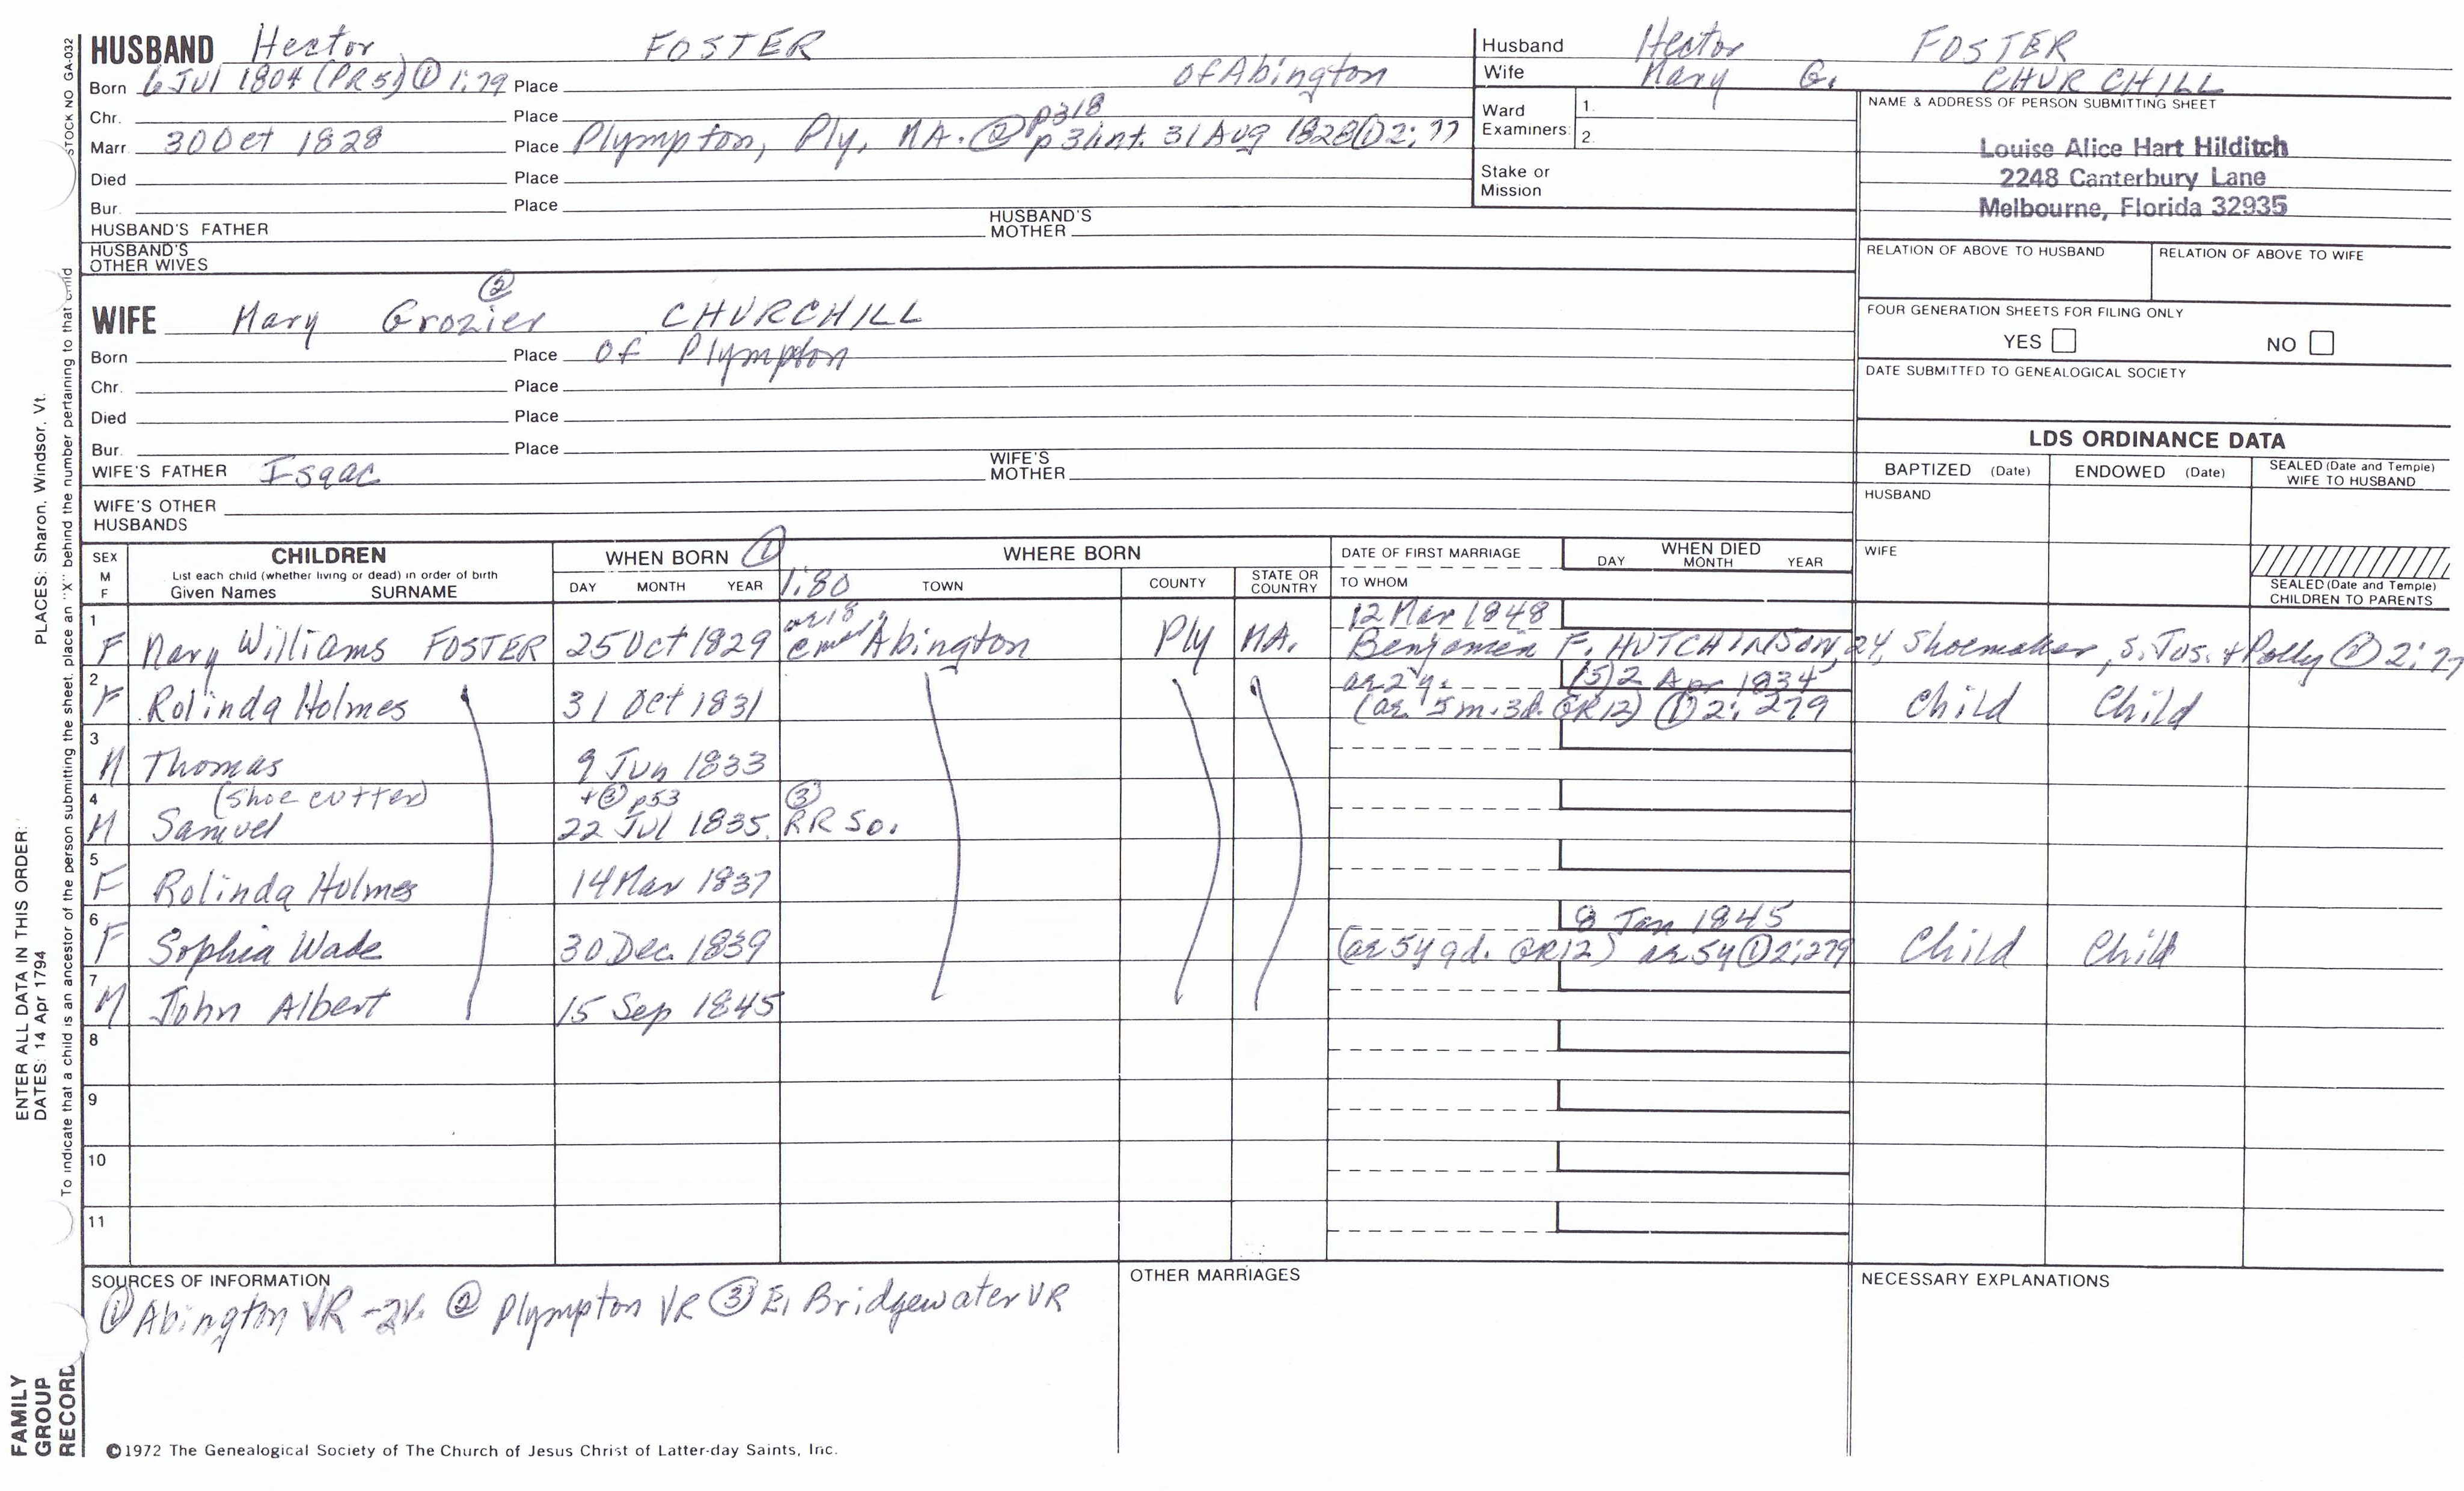 STOCK NO GA-032
HUSBAND Hector FOSTER
Born 6 Jul 1804 (PR 51) ① 1:79 Place of Abington
Chr. Place
Marr. 30 Oct 1828 Place Plympton, Ply, MA. ② p318 int. 31 Aug 1828 ① 2:77
Died Place
Bur. Place
HUSBAND'S FATHER HUSBAND'S MOTHER
HUSBAND'S OTHER WIVES
②
WIFE Mary Grozier CHURCHILL
Born Place of Plympton
Chr. Place
Died Place
Bur. Place
WIFE'S FATHER Isaac WIFE'S MOTHER
WIFE'S OTHER HUSBANDS
Husband Hector FOSTER
Wife Mary G. CHURCHILL
Ward Examiners: 1. 2.
Stake or Mission
NAME & ADDRESS OF PERSON SUBMITTING SHEET
Louise Alice Hart Hilditch
2248 Canterbury Lane
Melbourne, Florida 32935
RELATION OF ABOVE TO HUSBAND RELATION OF ABOVE TO WIFE
FOUR GENERATION SHEETS FOR FILING ONLY
YES NO
DATE SUBMITTED TO GENEALOGICAL SOCIETY
LDS ORDINANCE DATA
BAPTIZED (Date) ENDOWED (Date) SEALED (Date and Temple) WIFE TO HUSBAND
HUSBAND
WIFE
SEALED (Date and Temple) CHILDREN TO PARENTS
SEX M F
CHILDREN
List each child (whether living or dead) in order of birth
Given Names SURNAME
WHEN BORN ① 1:80
DAY MONTH YEAR
WHERE BORN
TOWN COUNTY STATE OR COUNTRY
DATE OF FIRST MARRIAGE
TO WHOM
WHEN DIED
DAY MONTH YEAR
1 F Mary Williams FOSTER 25 Oct 1829 Abington Ply MA. 12 Mar 1848
Benjamin F. HUTCHINSON, 24, Shoemaker, S. Jos. & Polly ① 2:77
2 F Rolinda Holmes 31 Oct 1831 ae 2 y. (5) 2 Apr 1834
(ae. 5 m. 3d. GR12) ① 2:279 Child Child
3 M Thomas 9 Jun 1833
4 M (Shoe cutter) +③ p53 ③
Samuel 22 Jul 1835. RR So.
5 F Rolinda Holmes 14 Mar 1837
6 F Sophia Wade 30 Dec. 1839 8 Jan 1845
(ae 5y 9d. GR12) ae 5y ① 2:279 Child Child
7 M John Albert 15 Sep 1845
8
9
10
11
SOURCES OF INFORMATION
① Abington VR - 2v. ② Plympton VR ③ E. Bridgewater VR
OTHER MARRIAGES
NECESSARY EXPLANATIONS
©1972 The Genealogical Society of The Church of Jesus Christ of Latter-day Saints, Inc.
ENTER ALL DATA IN THIS ORDER:
DATES: 14 Apr 1794
PLACES: Sharon, Windsor, Vt.
To indicate that a child is an ancestor of the person submitting the sheet, place an "X" behind the number pertaining to that child
FAMILY
GROUP
RECORD